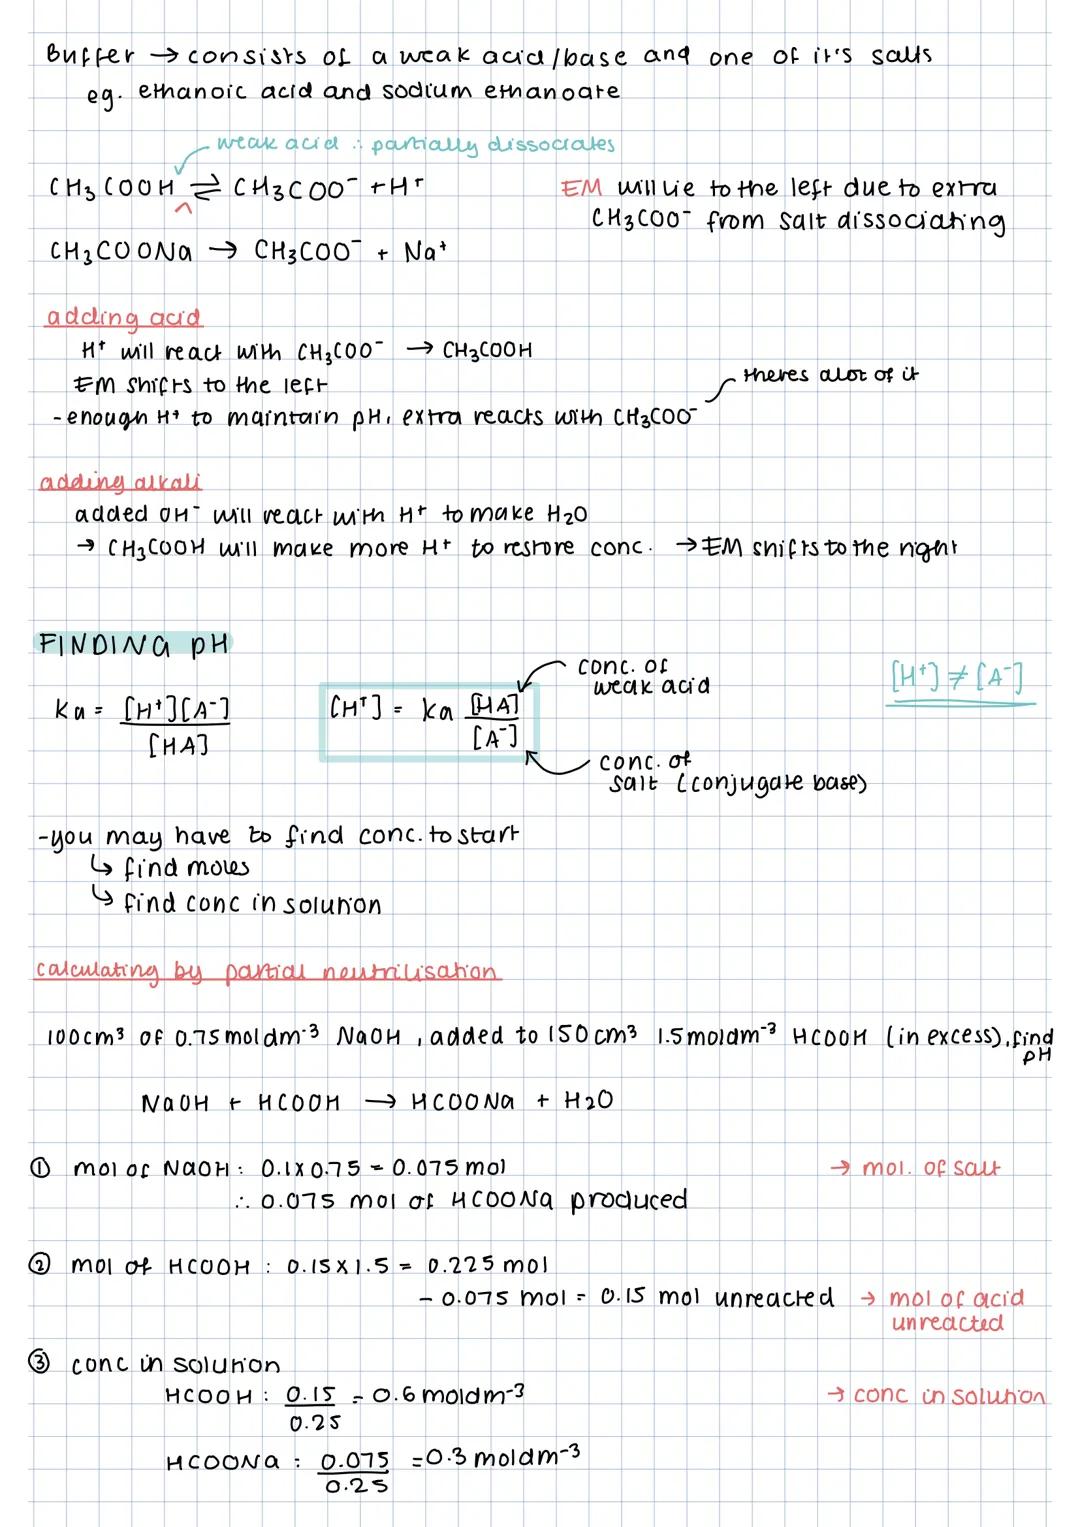 Buffer → consists of a weak acid/base and one of it's salts
eg. ethanoic acid and sodium ethanoate
weak acid ∴ partially dissociates
CH₃COOH ⇌ CH₃COO⁻ + H⁺
EM will lie to the left due to extra
CH₃COO⁻ from salt dissociating
CH₃COONa → CH₃COO⁻ + Na⁺
adding acid
H⁺ will react with CH₃COO⁻ → CH₃COOH
EM shifts to the left
theres alot of it
- enough H⁺ to maintain pH, extra reacts with CH₃COO⁻
adding alkali
added OH⁻ will react with H⁺ to make H₂O
→ CH₃COOH will make more H⁺ to restore conc. → EM shifts to the right
FINDING pH
Ka = [H⁺][A⁻] / [HA]
[H⁺] = Ka [HA] / [A⁻]
conc. of
weak acid
[H⁺] ≠ [A⁻]
conc. of
salt (conjugate base)
- you may have to find conc. to start
↳ find moles
↳ find conc in solution
calculating by partial neutrilisation
100cm³ of 0.75moldm⁻³ NaOH, added to 150cm³ 1.5moldm⁻³ HCOOH (in excess), find
pH
NaOH + HCOOH → HCOONa + H₂O
① mol of NaOH: 0.1 x 0.75 = 0.075 mol → mol. of salt
∴ 0.075 mol of HCOONa produced
② mol of HCOOH : 0.15 x 1.5 = 0.225 mol
- 0.075 mol = 0.15 mol unreacted → mol of acid
unreacted
③ conc in solution
HCOOH : 0.15 / 0.25 = 0.6 moldm⁻³ → conc in solution
HCOONa : 0.075 / 0.25 = 0.3 moldm⁻³